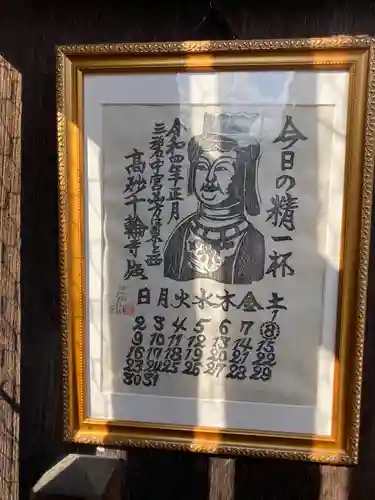 今日の精一杯
令和四年正月
三碧中宮
高砂千輪寺
日月火水木金土
1
2 3 4 5 6 7 8
9 10 11 12 13 14 15
16 17 18 19 20 21 22
23 24 25 26 27 28 29
30 31